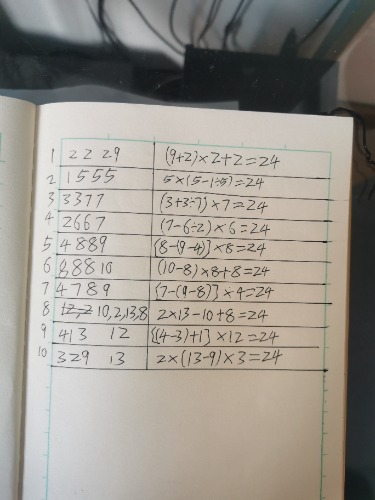 1 2 2 2 9 (9+2)×2+2=24
2 1 5 5 5 5×(5-1÷5)=24
3 3 3 7 7 (3+3÷7)×7=24
4 2 6 6 7 (7-6÷2)×6=24
5 4 8 8 9 {8-(9-4)]×8=24
6 8 8 8 10 (10-8)×8+8=24
7 4 7 8 9 {7-(9-8)]×4=24
8 12,2 10,2,13,8 2×13-10+8=24
9 4 1 3 12 {(4-3)+1]×12=24
10 3 2 9 13 2×(13-9)×3=24